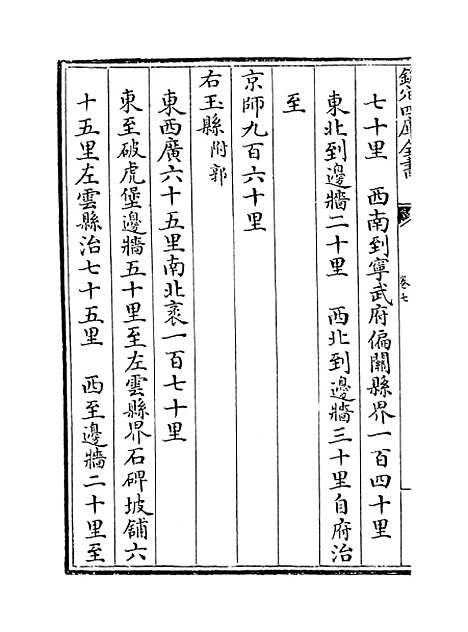 欽定四庫全書
卷七
七十里　西南到寧武府偏關縣界一百四十里
東北到邊牆二十里　西北到邊牆三十里自府治
至
京師九百六十里
右玉縣附郭
東西廣六十五里南北袤一百七十里
東至破虎堡邊牆五十里至左雲縣界石碑坡舖六
十五里左雲縣治七十五里　西至邊牆二十里至